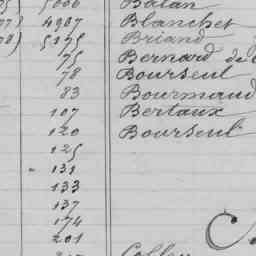 5000 Balan
4907 Blanchet
5175 Briand
75 Bernard de
78 Bourseul
83 Bourmaud
107 Bertaux
120 Bourseul
125
131
133
137
174
201